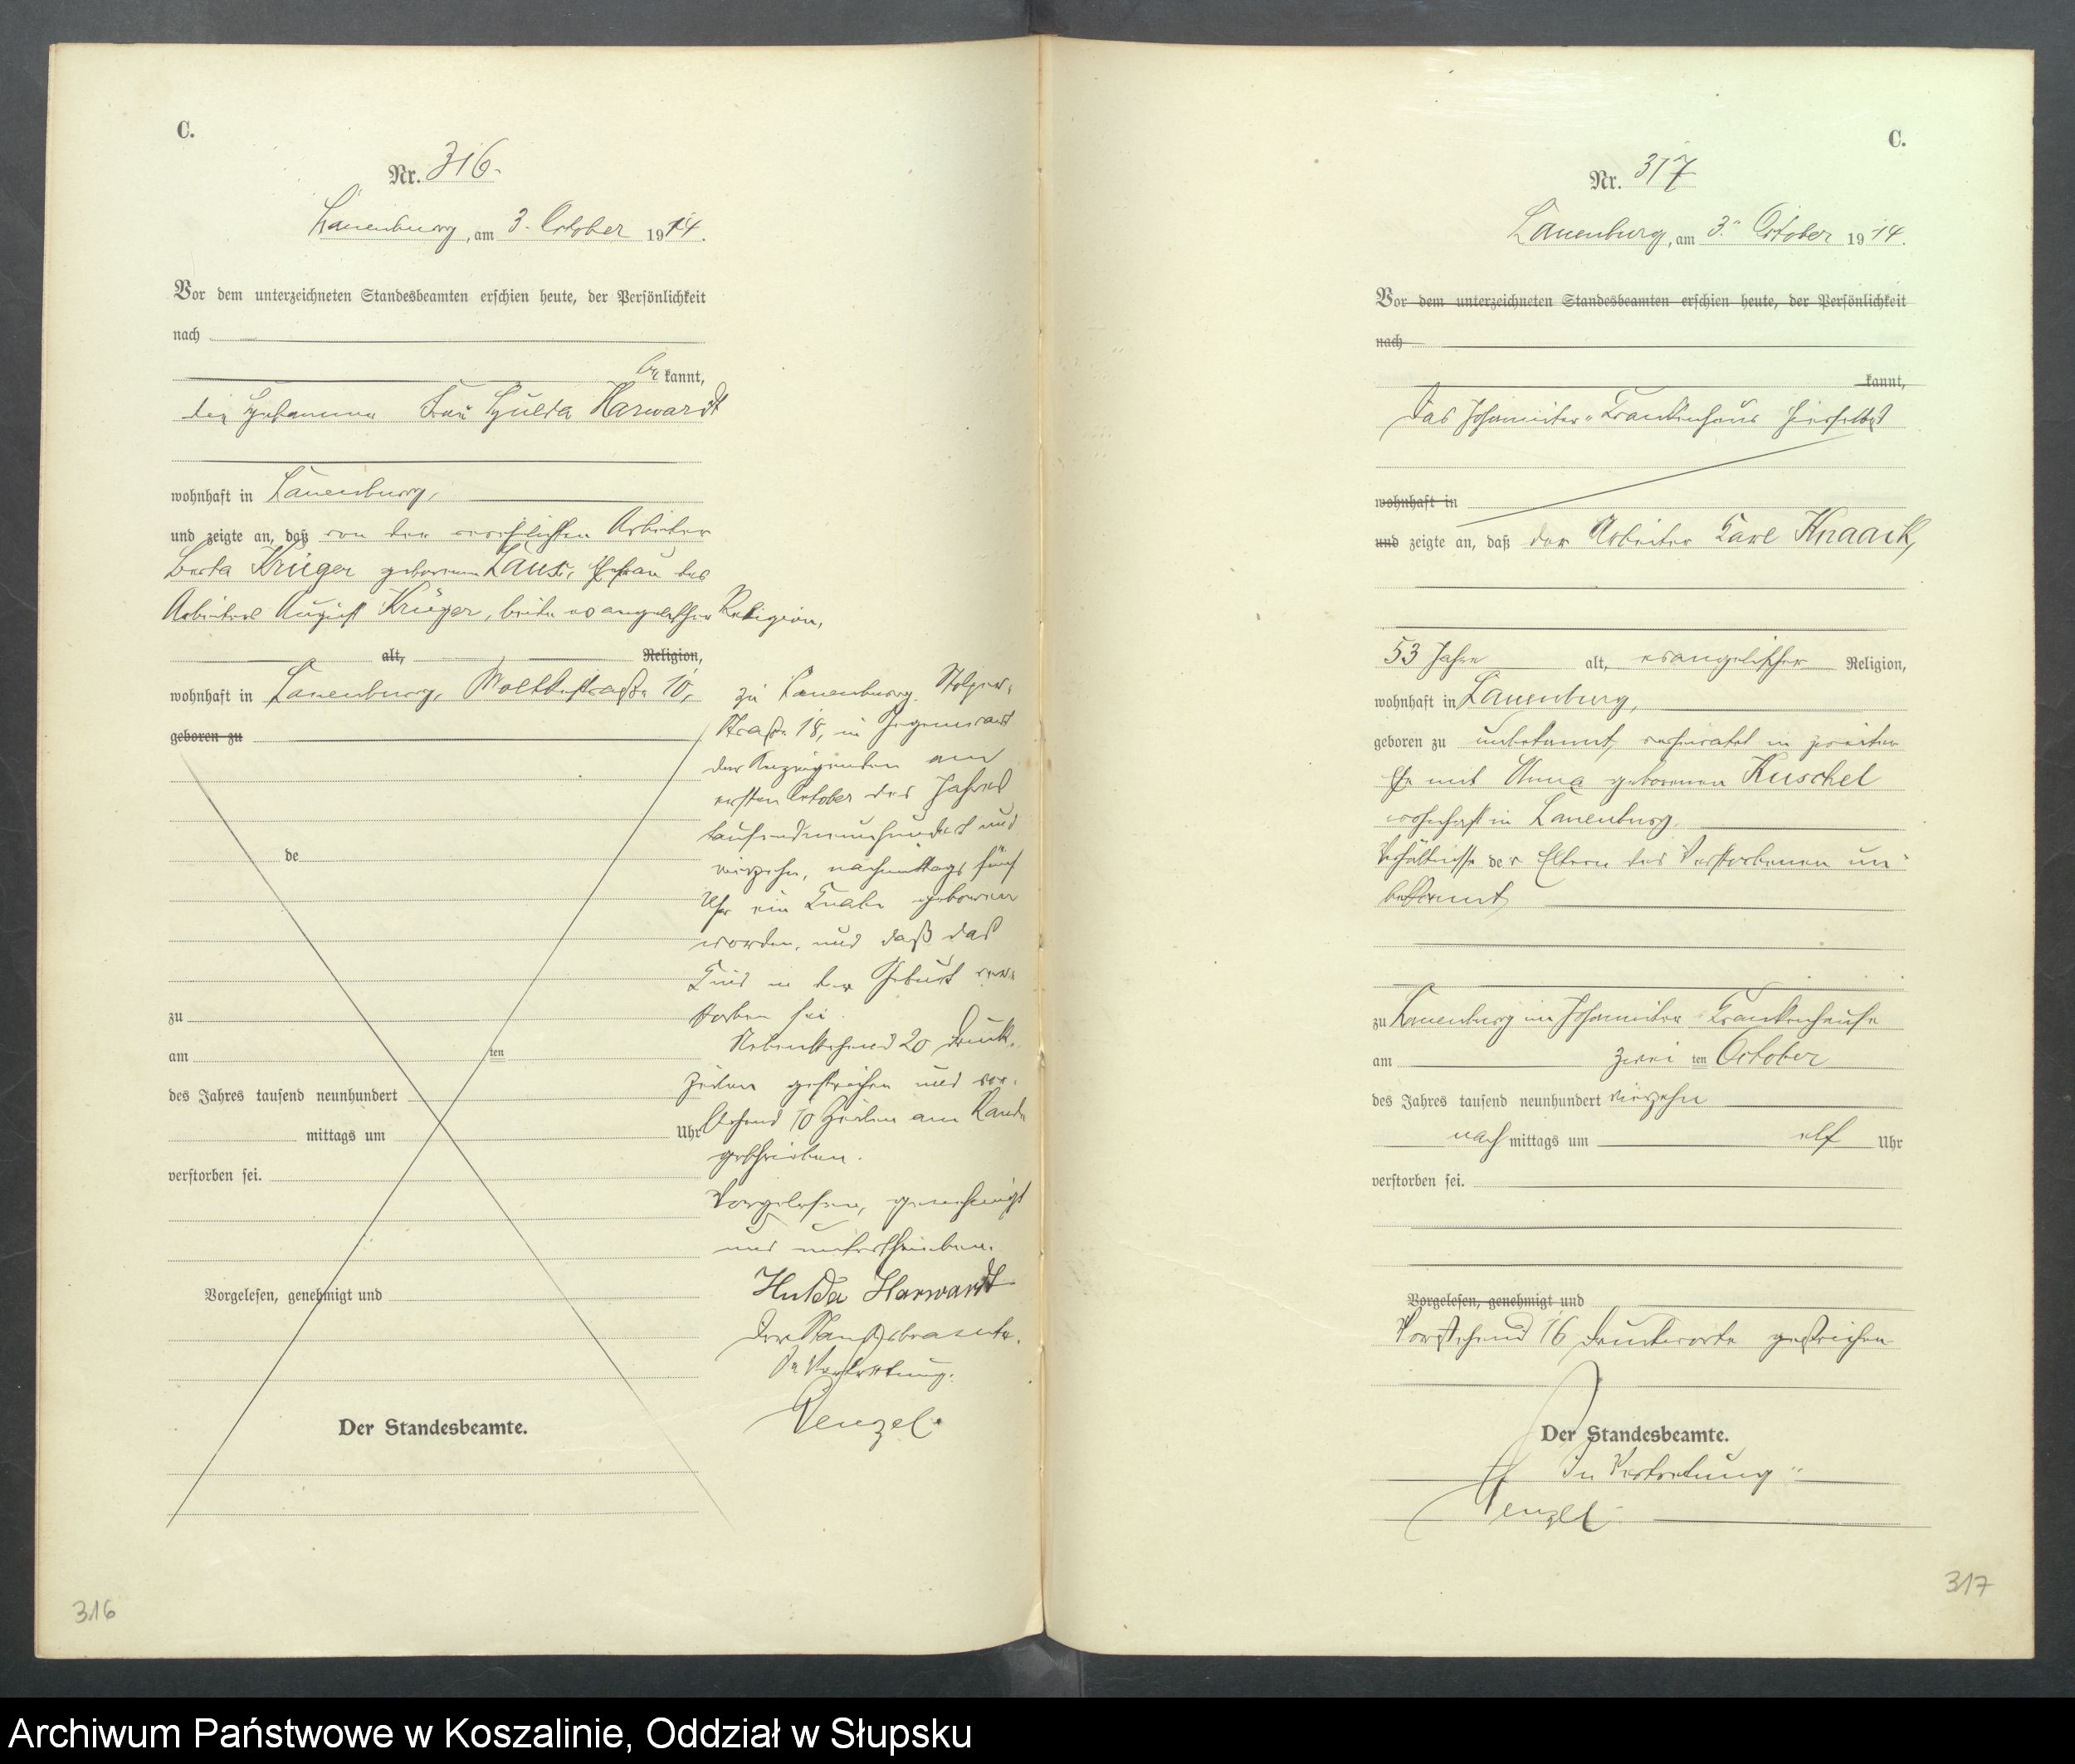 C.
Nr. 316.
Lauenburg, am 3. October 1914.
Vor dem unterzeichneten Standesbeamten erschien heute, der Persönlichkeit
nach
be kannt,
die Hebamme Frau Hulda Harwardt
wohnhaft in Lauenburg,
und zeigte an, daß von der verehelichten Arbeiter
Berta Krüger geborenen Ehefrau des
Arbeiters August Krüger, beide evangelischer Religion,
alt, Religion,
wohnhaft in Lauenburg, Moltkestraße 10,
geboren zu
de
zu
am ten
des Jahres tausend neunhundert
mittags um Uhr
verstorben sei.
Vorgelesen, genehmigt und
Der Standesbeamte.
zu Lauenburg Stolper-
Straße 18, in Gegenwart
der Anzeigenden am
ersten October des Jahres
tausendneunhundert und
vierzehn, nachmittags fünf
Uhr ein Knabe geboren
worden, und daß das
Kind in der Geburt ver-
storben sei.
Nebenstehend 20 Druck-
zeilen gestrichen und vor-
stehend 10 Zeilen am Rande
geschrieben.
Vorgelesen, genehmigt
und unterschrieben.
Hulda Harwardt
Der Standesbeamte.
In Vertretung.
Wenzel.
316
C.
Nr. 317
Lauenburg, am 3. October 1914.
Vor dem unterzeichneten Standesbeamten erschien heute, der Persönlichkeit
nach
kannt,
Das Johanniter-Krankenhaus hierselbst
wohnhaft in
und zeigte an, daß der Arbeiter Karl Knaack,
53 Jahre alt, evangelischer Religion,
wohnhaft in Lauenburg,
geboren zu unbekannt, verheiratet in zweiter
Ehe mit Anna geborenen Kuschel
wohnhaft in Lauenburg.
Verhältnisse der Eltern des Verstorbenen un-
bekannt,
zu Lauenburg im Johanniter Krankenhause
am zwei ten October
des Jahres tausend neunhundert vierzehn
nach mittags um elf Uhr
verstorben sei.
Vorgelesen, genehmigt und
Vorstehend 16 Druckworte gestrichen
Der Standesbeamte.
In Vertretung
Wenzel.
317
Archiwum Państwowe w Koszalinie, Oddział w Słupsku